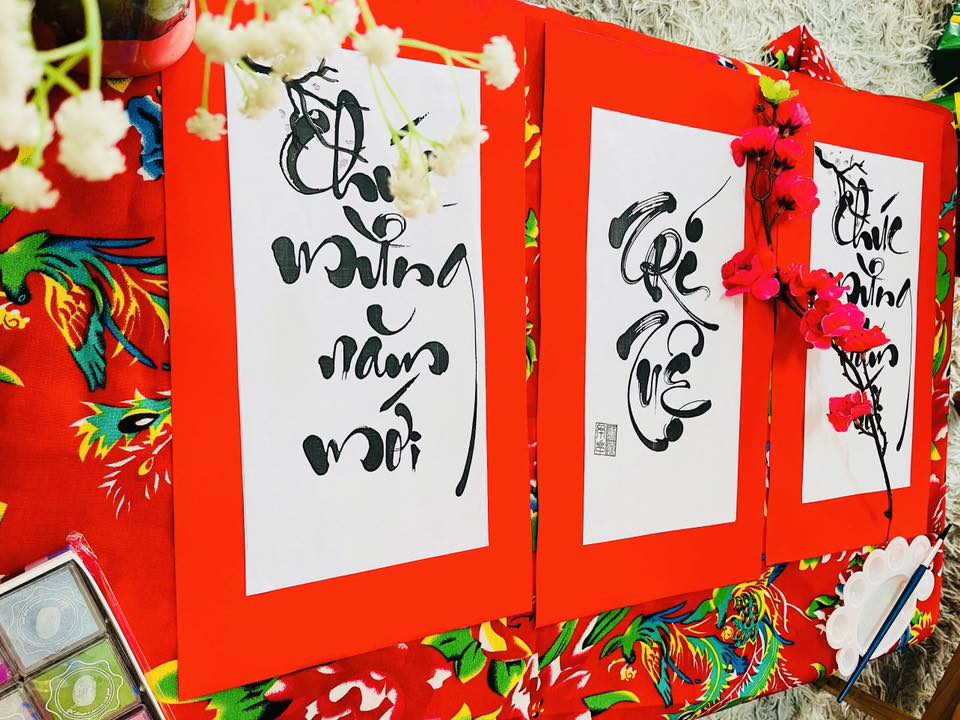 Chúc
mừng
năm
mới
Trí
Tuệ
Chúc
mừng
năm